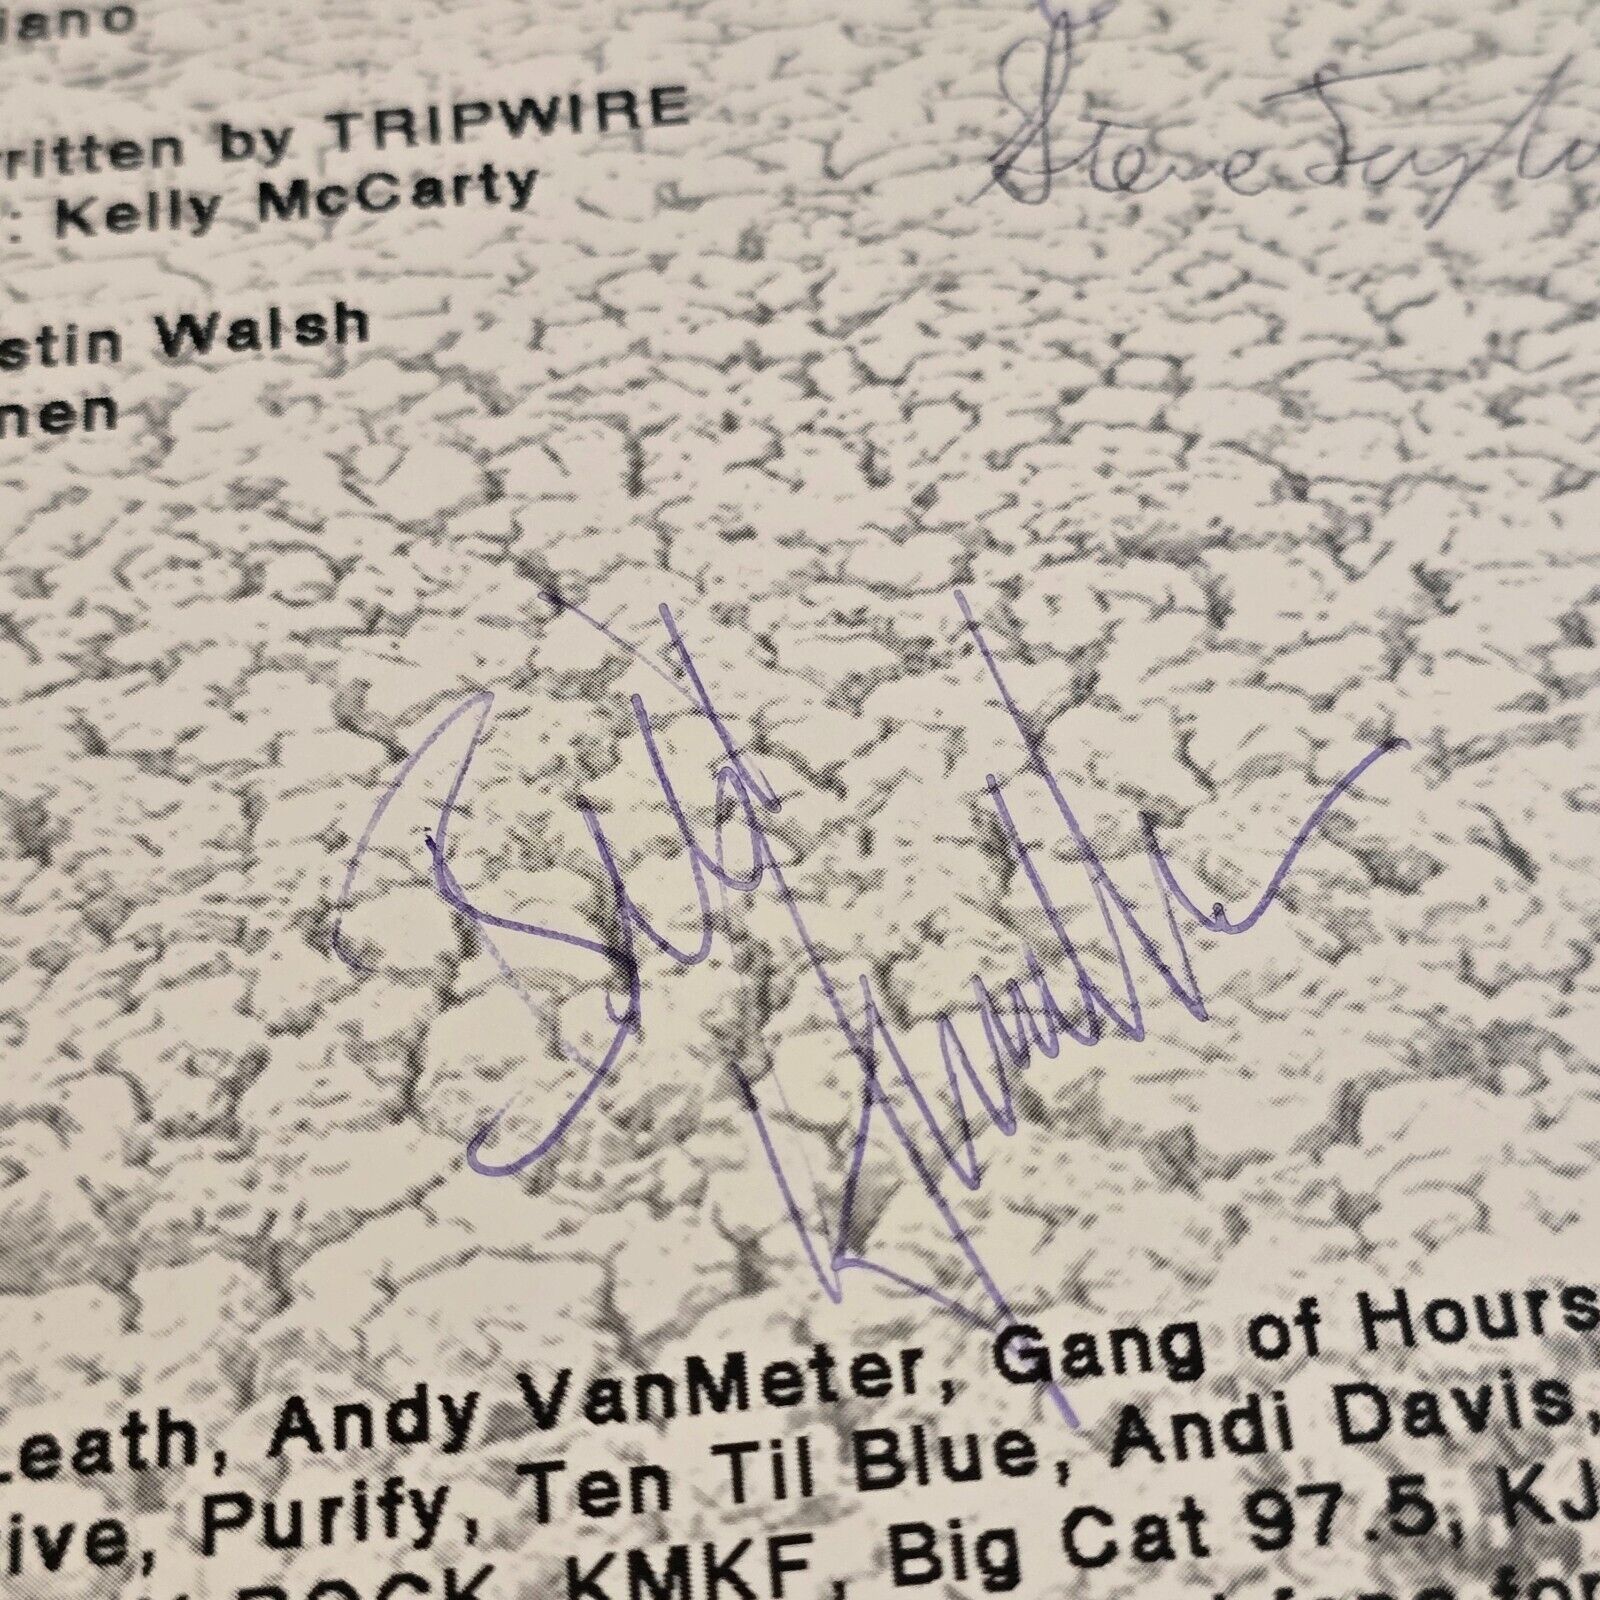 iano
Steve Taylo
ritten by TRIPWIRE
: Kelly McCarty
stin Walsh
nen
Leath, Andy VanMeter, Gang of Hours
ive, Purify, Ten Til Blue, Andi Davis,
ROCK, KMKF, Big Cat 97.5, KJ
for